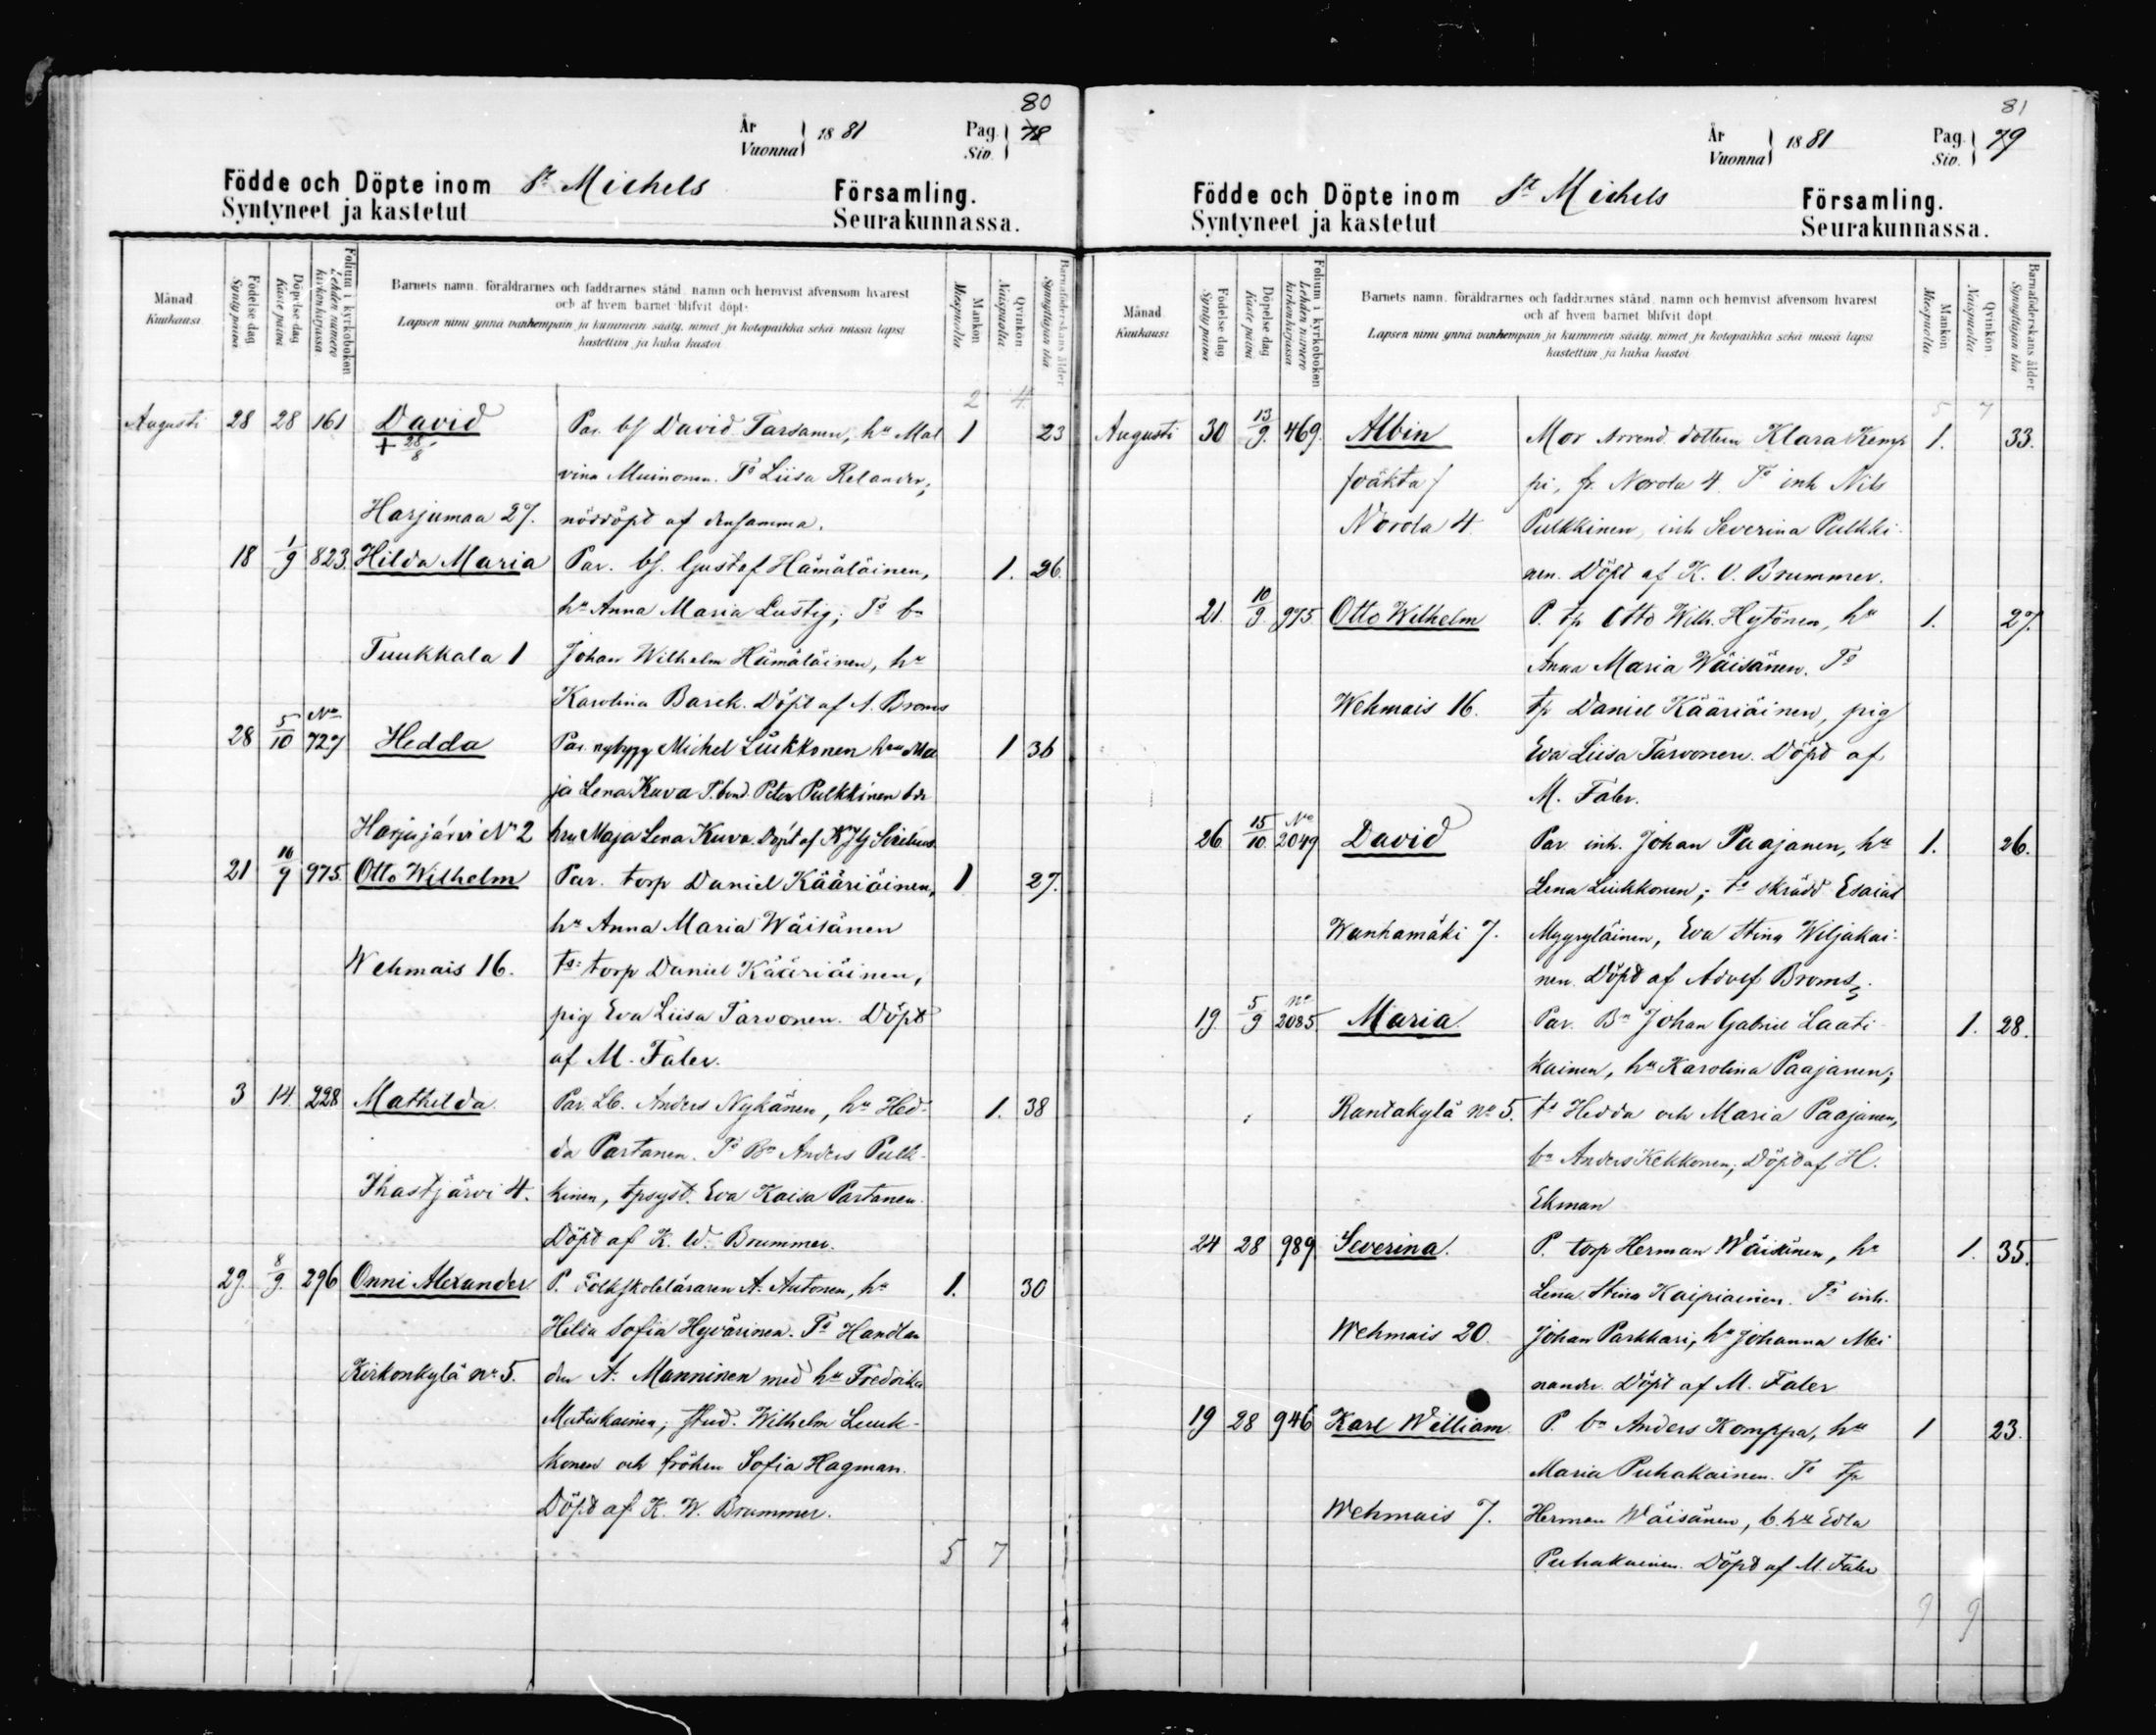 80
År
Vuonna
1881
Pag.
Siv.
78
Födde och Döpte inom St Michels Församling.
Syntyneet ja kastetut Seurakunnassa.
Månad
Kuukausi
Födelse dag
Synty päivä
Döpelse dag
Kaste päivä
Folium i kyrkoboken
Lehden numero kirkonkirjassa
Barnets namn, föräldrarnes och faddrarnes stånd, namn och hemvist äfvensom hvarest
och af hvem barnet blifvit döpt.
Lapsen nimi ynnä vanhempain ja kummein sääty, nimet ja kotopaikka sekä missä lapsi
kastettiin ja kuka kastoi
Mankön
Miespuolia
Qvinkön
Naispuolia
Barnaföderskans ålder
Synnyttäjän ikä
2 4
Augusti 28 28 161 David Par. bf David Tarsanen, hu Mal 1 23
+ 28/8 vina Muinonen. Ts Liisa Relander;
Harjumaa 27. nöddöpt af densamma.
18 1/9 823. Hilda Maria Par. bf. Gustaf Hämäläinen, 1. 26.
hu Anna Maria Lustig; Ts bn
Tuukkala 1 Johan Wilhelm Hämäläinen, hu
Karolina Barck. Döpt af A. Broms
28 5/10 No 727 Hedda Par. nybygg Michel Liukkonen hru Ma 1 36
ja Lena Kuva T. bond. Peter Pulkkinen bdr
Harjujärvi No 2 hru Maja Lena Kuva. Döpt af Sirelius
21 16/9 975. Otto Wilhelm Par. torp Daniel Kääriäinen, 1 27.
hu Anna Maria Wäisänen
Wehmais 16. ts: torp Daniel Kääriäinen,
pig Eva Liisa Tarvonen. Döpt
af M. Faler.
3 14. 228 Mathilda. Par. Lb. Anders Nykänen, hu Hed- 1. 38
da Partanen. Ts Bn Anders Pulk-
Ihastjärvi 4. kinen, tpsyst. Eva Kaisa Partanen.
Döpt af K. W. Brummer.
29. 8/9. 296 Onni Alexander. P. Folkskoleläraren A. Autonen, hu 1. 30
Hilda Sofia Hyvärinen. Ts Handlan
Kirkonkylä no 5. den A. Manninen med hu Fredrika
Matiskainen; stud. Wilhelm Luuk-
konen och fröken Sofia Hagman.
Döpt af K. W. Brummer.
5 7
81
År
Vuonna
1881
Pag.
Siv.
79
Födde och Döpte inom St Michels Församling.
Syntyneet ja kastetut Seurakunnassa.
Månad
Kuukausi
Födelse dag
Synty päivä
Döpelse dag
Kaste päivä
Folium i kyrkoboken
Lehden numero kirkonkirjassa
Barnets namn, föräldrarnes och faddrarnes stånd, namn och hemvist äfvensom hvarest
och af hvem barnet blifvit döpt.
Lapsen nimi ynnä vanhempain ja kummein sääty, nimet ja kotopaikka sekä missä lapsi
kastettiin ja kuka kastoi
Mankön
Miespuolia
Qvinkön
Naispuolia
Barnaföderskans ålder
Synnyttäjän ikä
5 7
Augusti 30 13/9. 469. Albin Mor Arrend. dottern Klara Kemp 1. 33.
/oäkta/ pi, fr. Norola 4. Ts inh Nils
Norola 4. Pulkkinen, inh Severina Pulkki-
nen. Döpt af K. V. Brummer.
21. 10/9. 975 Otto Wilhelm P. tp Otto Wilh. Hytönen, hu 1. 27.
Anna Maria Wäisänen. Ts
Wehmais 16. tp Daniel Kääriäinen, pig
Eva Liisa Tarvonen. Döpt af
M. Faler.
26. 15/10. No 2049 David Par inh. Johan Paajanen, hu 1. 26.
Lena Liukkonen; ts skrädd Esaias
Wanhamäki 7. Myyryläinen, Eva Stina Wiljakai-
nen. Döpt af Adolf Broms.
19. 5/9 no 2085. Maria. Par. Bn Johan Gabriel Laati- 1. 28.
kainen, hu Karolina Paajanen;
Rantakylä no 5. ts Hedda och Maria Paajanen,
bn Anders Kekkonen; Döpt af H.
Ekman
24 28 989 Severina. P. torp Herman Wäisänen, hu 1. 35.
Lena Stina Kaipiainen. Ts inh.
Wehmais 20. Johan Parkkari, hu Johanna Mei
nander. Döpt af M. Faler
19 28 946 Karl William P. bn Anders Komppa, hu 1 23.
Maria Puhakainen. Ts tp
Wehmais 7. Herman Wäisänen, b. hu Edla
Puhakainen. Döpt af M. Faler
9 9